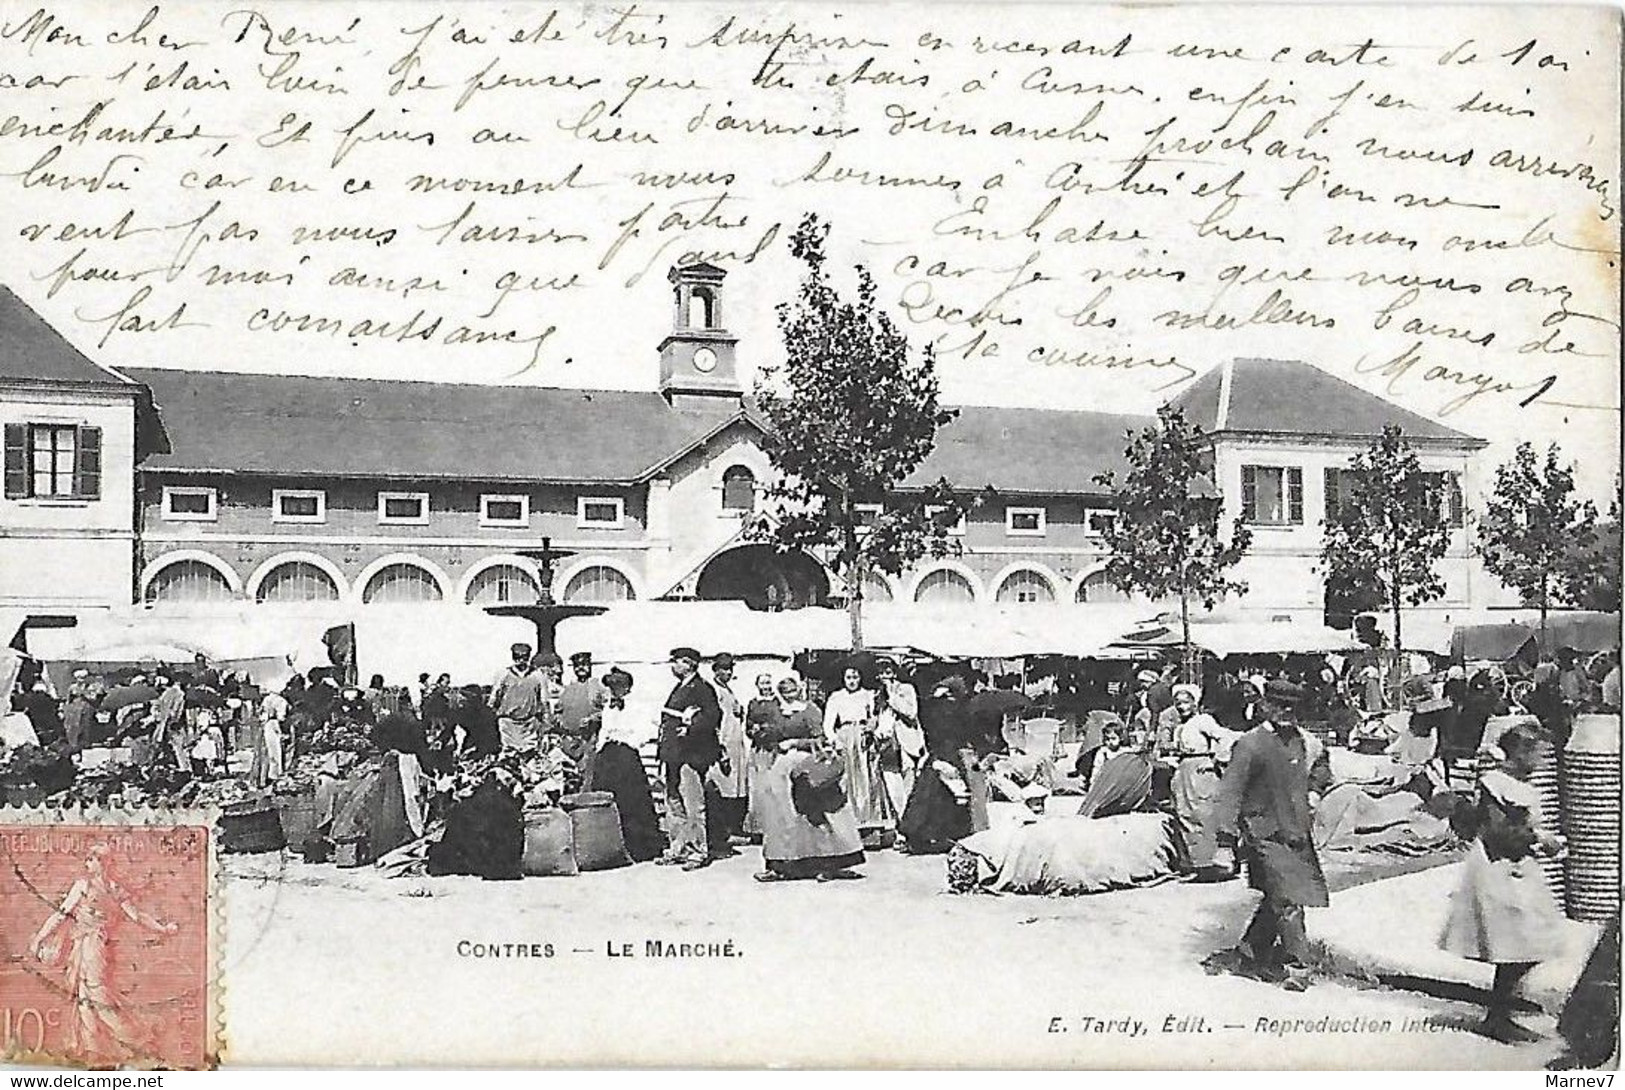 Mon cher René, j'ai été très surprise en recevant une carte de toi
car j'étais loin de penser que tu étais à Cusne. enfin j'en suis
enchantée, Et puis au lieu d'arriver Dimanche prochain nous arriverons
lundi car en ce moment nous sommes à Contres et l'on ne
veut pas nous laisser partir
Embrasse bien mon oncle
pour moi ainsi que Paul
car je vois que vous avez
fait connaissance.
Reçois les meilleurs baisers de
ta cousine
Margot
REPUBLIQUE FRANÇAISE
10c
CONTRES — LE MARCHÉ.
E. Tardy, Édit. — Reproduction interd
Marnev7